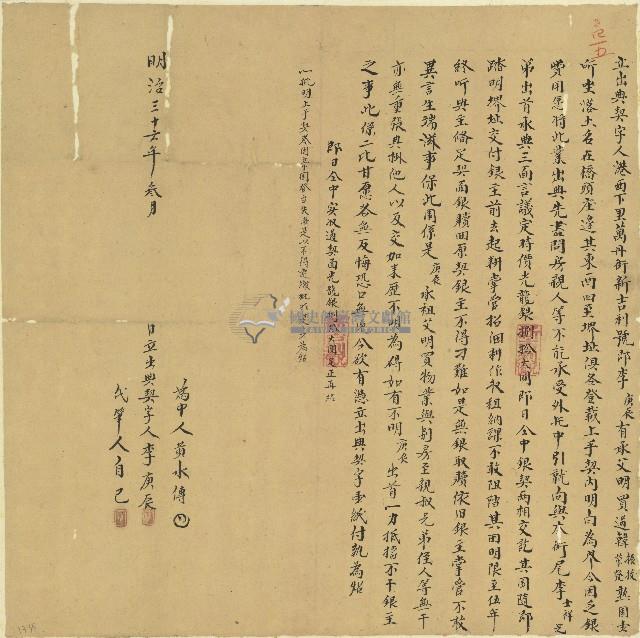 立出典契字人港西下里萬丹街新吉利號即李庚辰有承父明買過韓振拔榮發熟園壹
所坐落土名在橋頭庄邊其東西四至堺址俱各登載上手契內明白為界今因乏銀
費用愿將此業出典先盡問房親人等不能承受外托中引就向與本街尾李士祥兄
弟出首承典三面言議定時價光龍銀捌拾大圓即日仝中銀契兩相交訖其園隨即
踏明堺址交付銀主前去起耕掌管招佃耕作收租納課不敢阻擋其田明限至伍年
終听典主備足契面銀贖回原契銀主不得刁難如是無銀取贖依旧銀主掌管不敢
異言生端滋事保此園係是庚辰承祖父明買物業與別房至親叔兄弟侄人等無干
亦無重張典掛他人以及交加來歷不明為碍如有不明庚辰出首一力抵擋不干銀主
之事此係二比甘愿各無反悔恐口無憑今欲有憑立出典契字壹紙付執為炤
即日仝中實收過契面光龍銀捌拾大圓足正再炤
明治三十六年叁月 日立出典契字人李庚辰
為中人黃水傳
代筆人自己
國史館臺灣文獻館